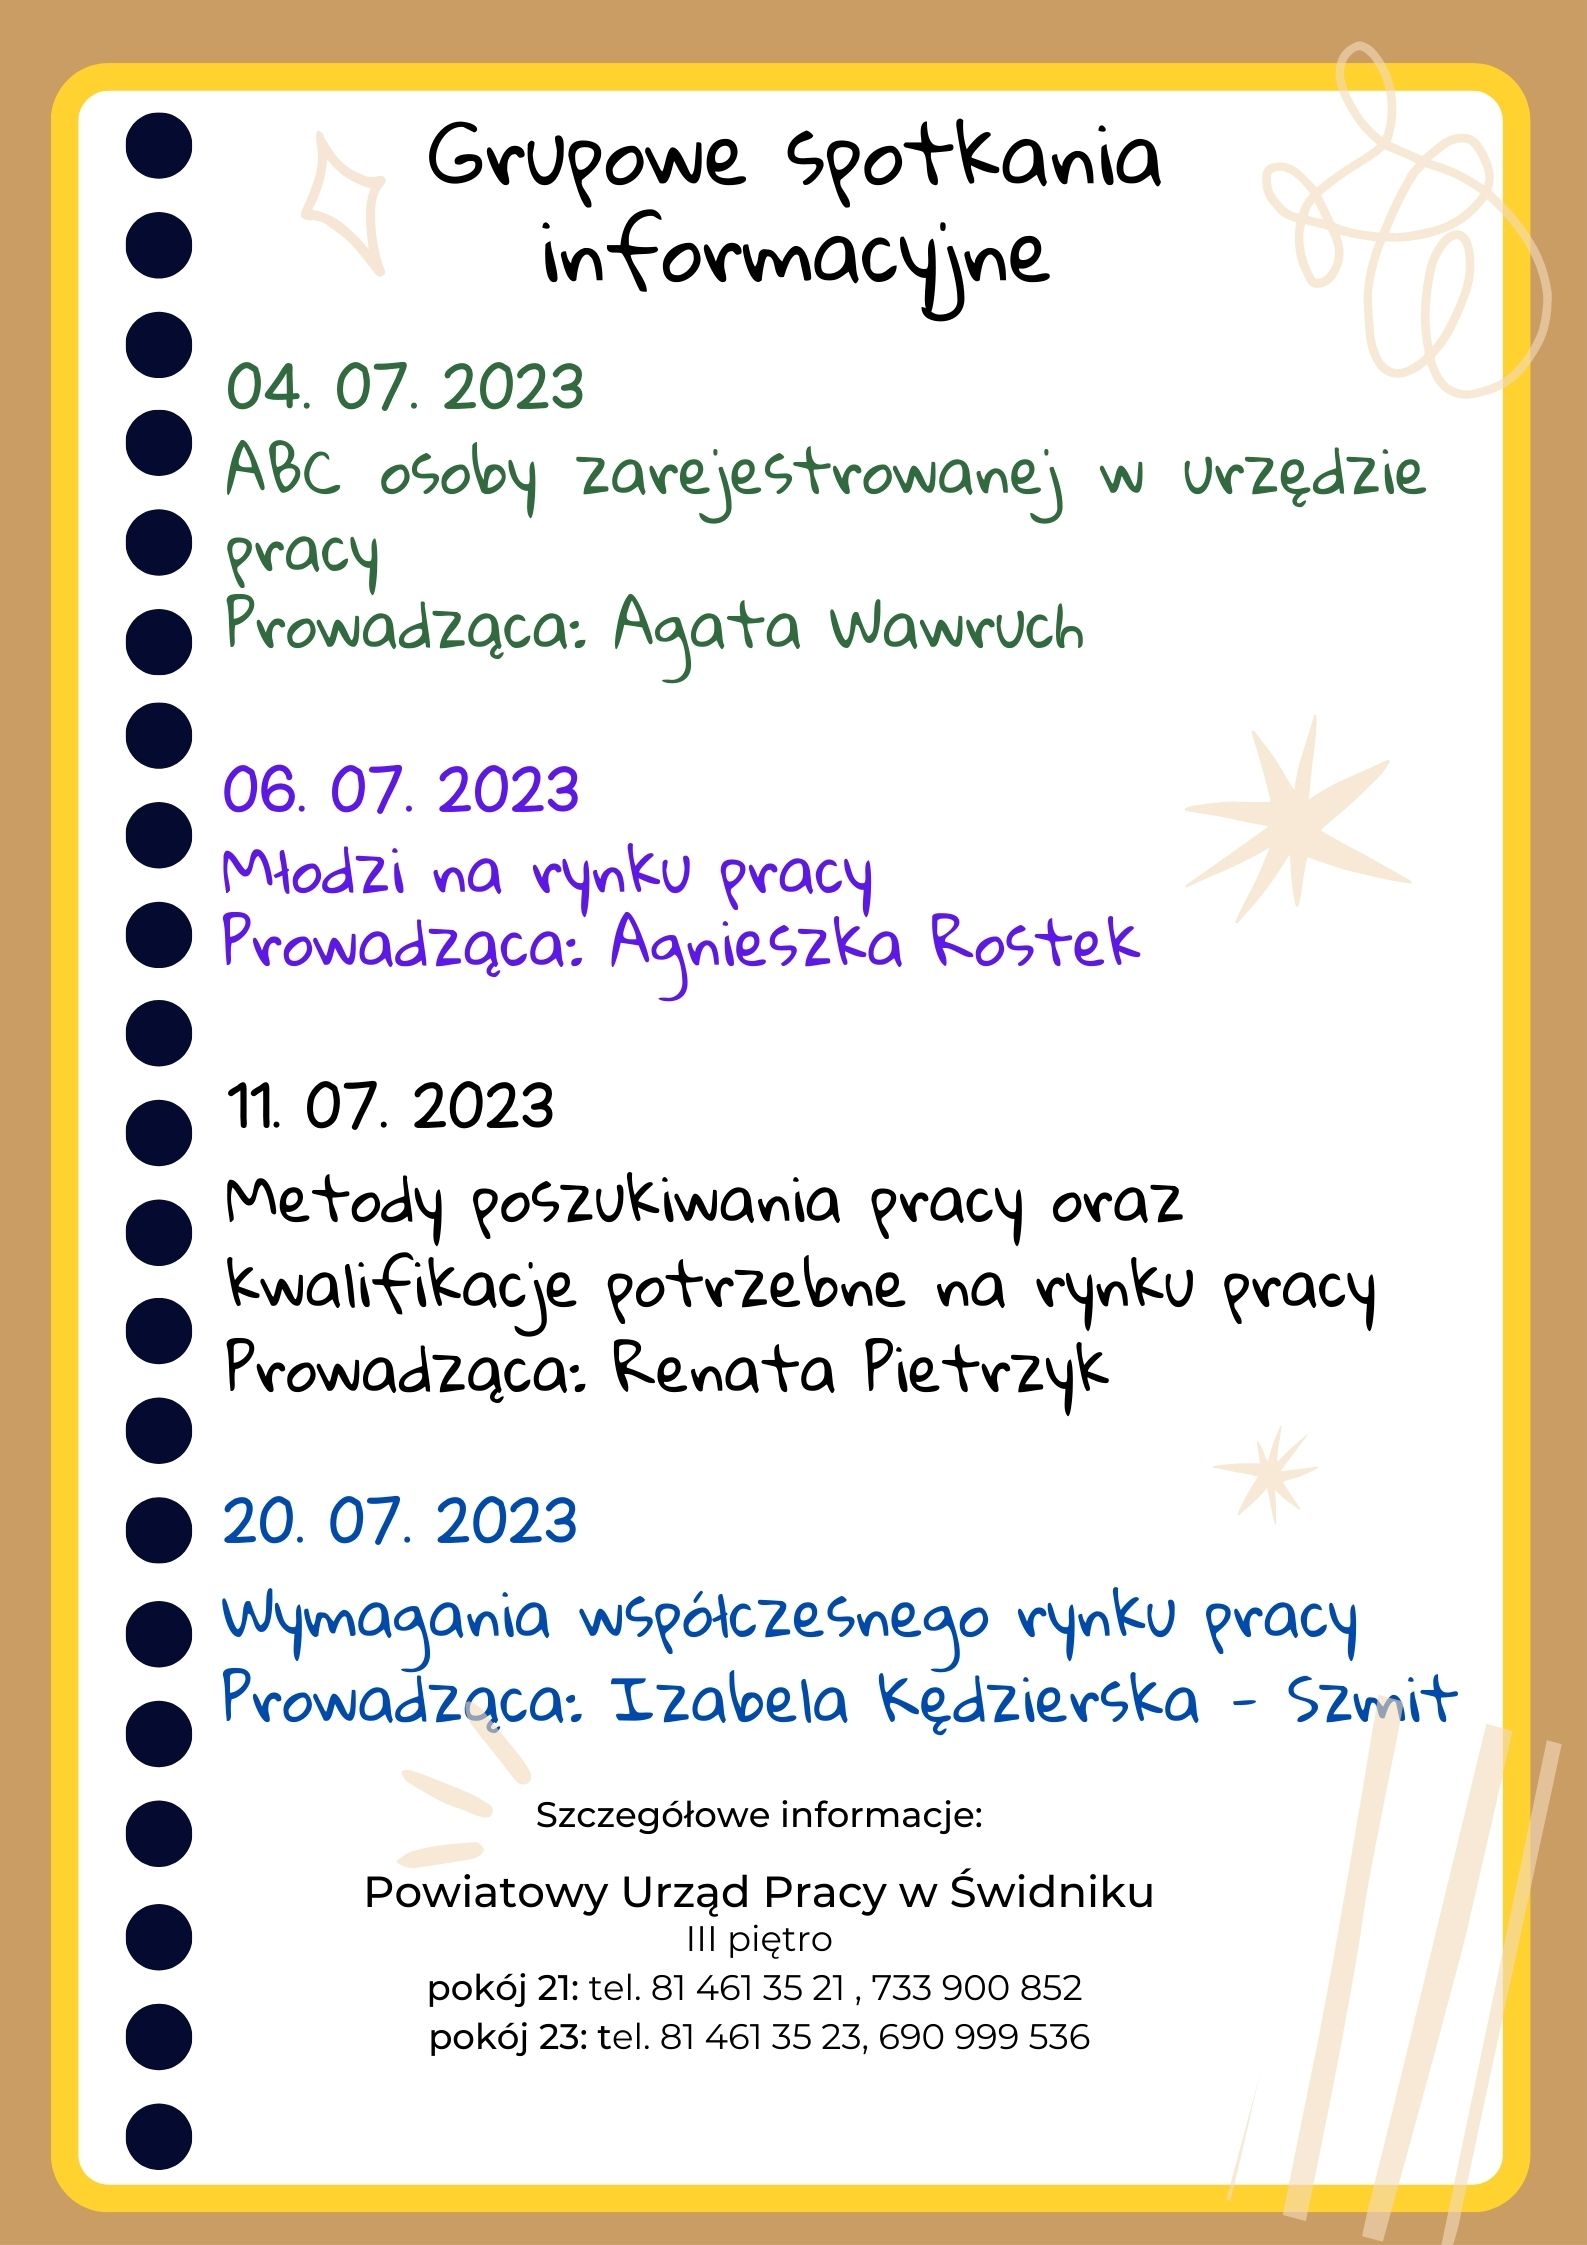 Grupowe spotkania
informacyjne
04. 07. 2023
ABC osoby zarejestrowanej w urzędzie
pracy
Prowadząca: Agata Wawruch
06. 07. 2023
Młodzi na rynku pracy
Prowadząca: Agnieszka Rostek
11. 07. 2023
Metody poszukiwania pracy oraz
kwalifikacje potrzebne na rynku pracy
Prowadząca: Renata Pietrzyk
20. 07. 2023
Wymagania współczesnego rynku pracy
Prowadząca: Izabela Kędzierska - Szmit
Szczegółowe informacje:
Powiatowy Urząd Pracy w Świdniku
III piętro
pokój 21: tel. 81 461 35 21 , 733 900 852
pokój 23: tel. 81 461 35 23, 690 999 536